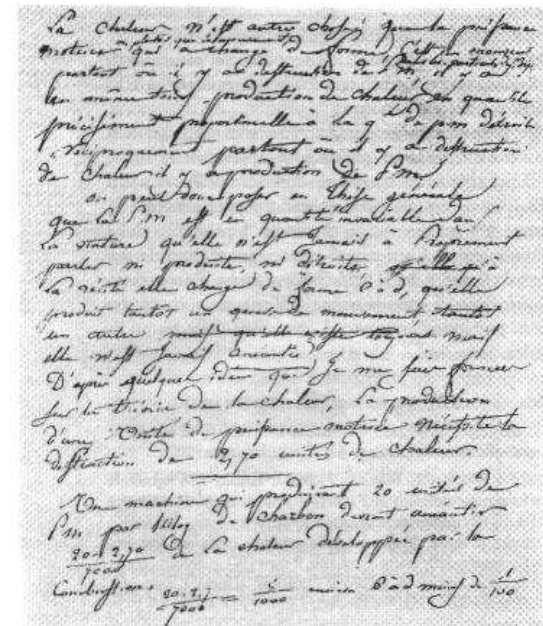 La chaleur n'est autre chose que la puissance
motrice ou plutôt que le mouvement qui a changé de forme, c'est un mouvement
partout où il y a destruction de p.m. il y a
en même tems production de chaleur en quantité
précisément proportionnelle à la q^té de p.m détruite
réciproquement partout où il y a destruction
de chaleur il y a production de p.m
on peut donc poser en thèse générale
que la p.m est en quantité invariable dans
la nature qu'elle n'est jamais à proprement
parler ni produite, ni détruite,
la vérité elle change de forme c.à.d, qu'elle
produit tantôt un genre de mouvement, tantôt
un autre mais qu'elle existe toujours mais
elle n'est jamais anéantie
D'après quelques idées que je me suis formées
sur la théorie de la chaleur, la production
d'une unité de puissance motrice nécessite la
destruction de 2,70 unités de chaleur.
Une machine qui produirait 20 unités de
p.m par kilog de charbon devrait anéantir
20.2,70/7000 de la chaleur développée par la
combustion. 20.2,7/7000 = 8/1000 environ c.à.d moins de 1/100